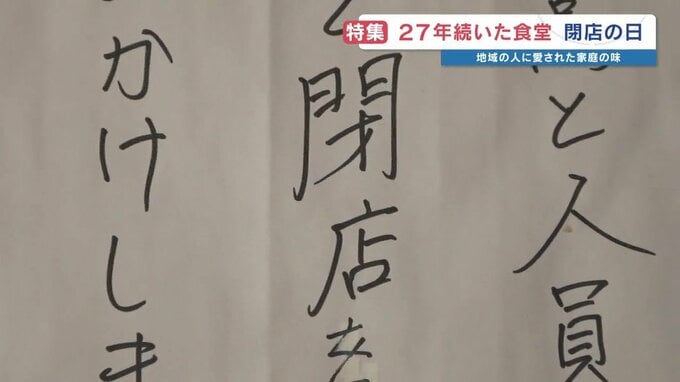 特集
27年続いた食堂 閉店の日
地域の人に愛された家庭の味
と人員
閉店を
かけしま